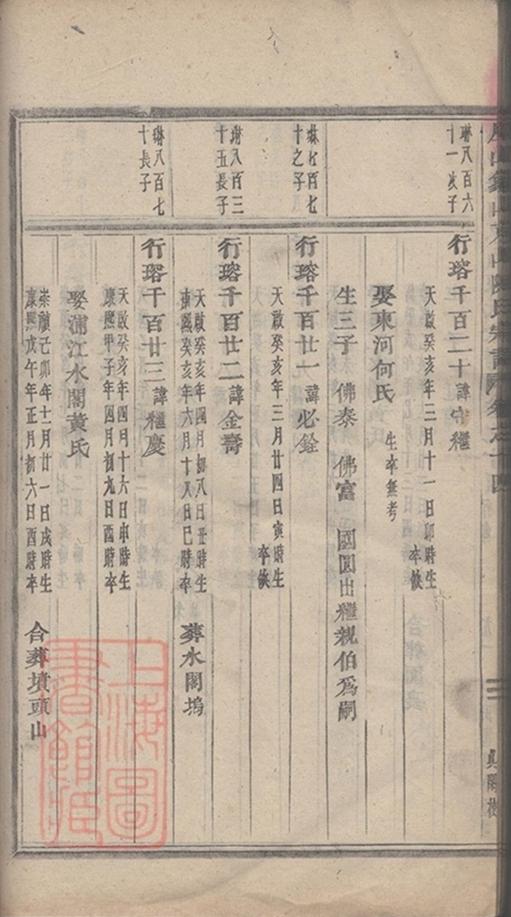 琳八百六
十一次子
行瑢千百二十諱守繼
天啟癸亥年三月十一日卯時生
卒缺
娶東河何氏
生卒無考
生三子 佛泰 佛富 國圓出繼親伯為嗣
琳七百七
十之子
行瑢千百廿一諱必銓
天啟癸亥年三月廿四日寅時生
卒缺
琳八百三
十五長子
行瑢千百廿二諱金壽
天啟癸亥年四月初八日丑時生
康熙癸亥年六月十八日巳時卒
葬水閣塢
琳八百七
十長子
行瑢千百廿三諱繼慶
天啟癸亥年四月十六日申時生
康熙甲子年四月初九日酉時卒
娶浦江水閣黃氏
崇禎己卯年十二月廿一日戌時生
康熙戊午年正月初六日酉時卒
合葬墳頭山
上海圖書館藏